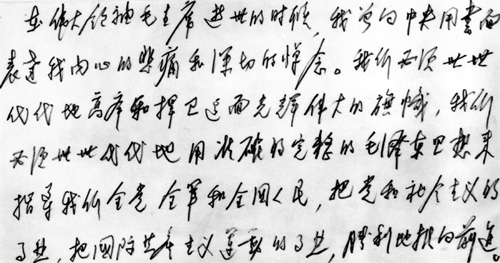 在伟大领袖毛主席逝世的时候，我曾向中央用书面
表达我内心的悲痛和深切的悼念。我们必须世世
代代地高举和捍卫这面光辉伟大的旗帜，我们
必须世世代代地用准确的完整的毛泽东思想来
指导我们全党全军和全国人民，把党和社会主义的
事业，把国际共产主义运动的事业，胜利地推向前进